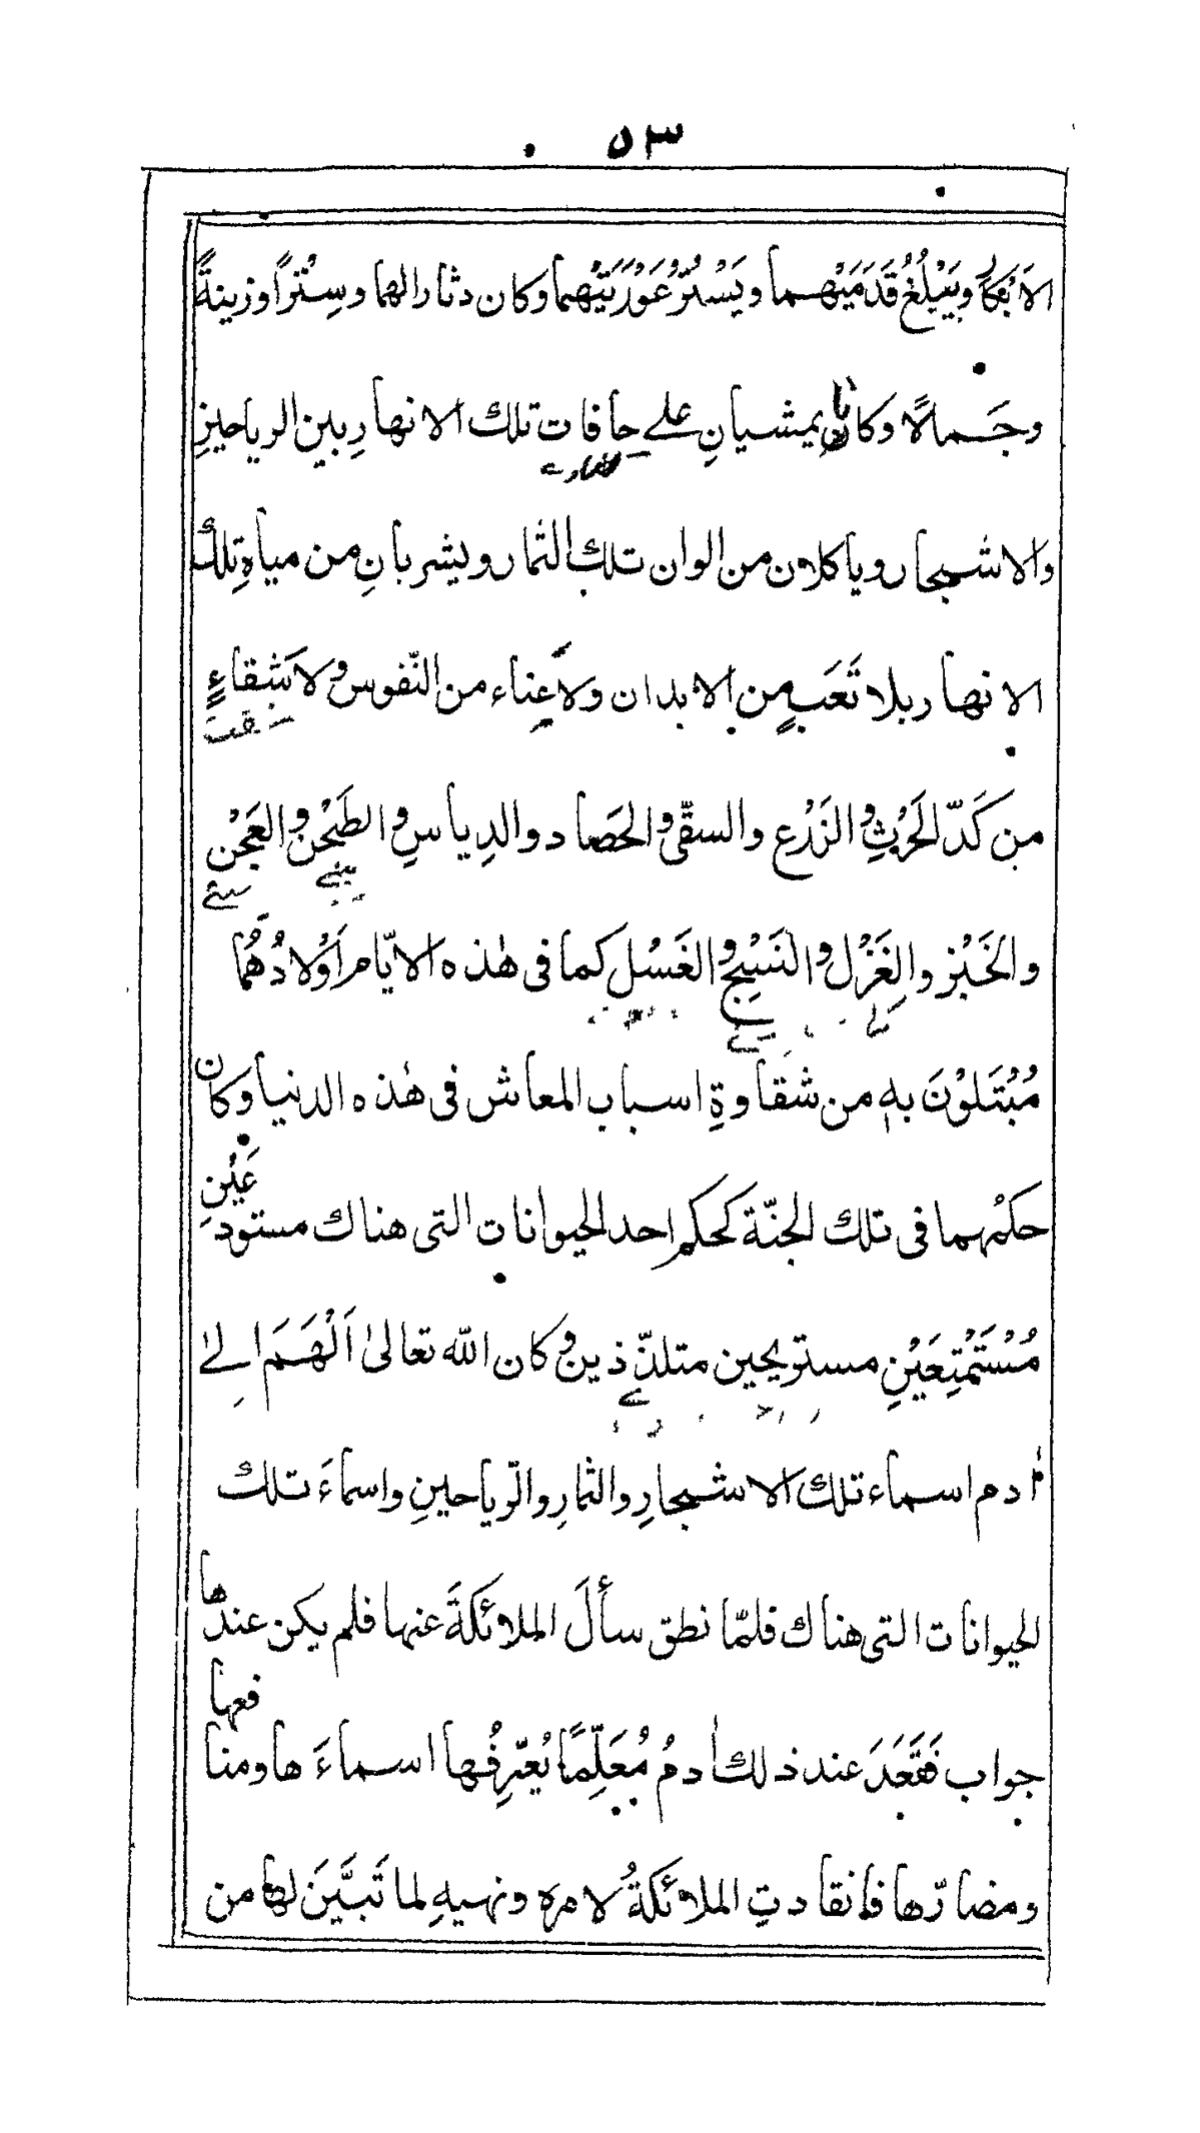 ٥٣
الابكار ويَبْلُغُ قَدَمَيْهِما ويَسْتُرُ عَوْرَتَيْهِما وكان دثارا لهما وسِتْرًا وزينةً
وجَمالًا وكانا يمشيانِ على حافات تلك الانهارِ بين الرياحينِ
والاشجار وياكلان من الوان تلك الثمار ويشربانِ من مياهِ تلك
الانهار بلا تَعَبٍ من الابدان ولا عِناء من النّفوس ولا شَقاءٍ
من كَدّ الحَرْثِ والزَرْع والسقى والحَصاد والدِياسِ والطَحْن والعَجْن
والخَبْز والغَزْل والنَسْج والغَسْل كما فى هٰذه الايّام اَوْلادُهُما
مُبْتَلَوْنَ به من شَقاوةِ اسباب المعاش فى هٰذه الدنيا وكان
حكمُهما فى تلك الجنّة كحكم احد الحيوانات التى هناك مستودَعَيْنِ
مُسْتَمْتِعَيْنِ مستريحين متلذّذين وكان الله تعالىٰ اَلْهَمَ الىٰ
اٰدم اسماء تلك الاشجارِ والثمارِ والرّياحينِ واسماءَ تلك
الحيوانات التى هناك فلمّا نطق سألَ الملائكةَ عنها فلم يكن عندها
جواب فَقَعَدَ عند ذلك اٰدمُ مُعَلِّمًا يُعَرِّفُها اسماءَها ومنافعها
ومضارّها فانقادتِ الملائكةُ لامره ونهيهِ لما تَبَيَّنَ لها من